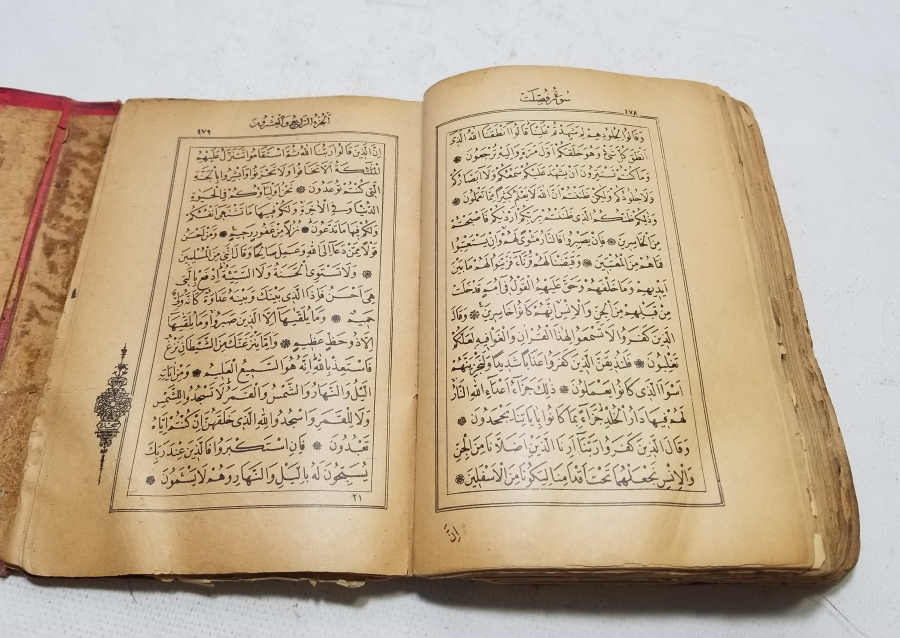 سُورَةُ فُصِّلَتْ
٤٧٨
وَقَالُوا لِجُلُودِهِمْ لِمَ شَهِدْتُمْ عَلَيْنَا قَالُوا اَنْطَقَنَا اللّٰهُ الَّذِى
اَنْطَقَ كُلَّ شَىْءٍ وَهُوَ خَلَقَكُمْ اَوَّلَ مَرَّةٍ وَاِلَيْهِ تُرْجَعُونَ
وَمَا كُنْتُمْ تَسْتَتِرُونَ اَنْ يَشْهَدَ عَلَيْكُمْ سَمْعُكُمْ وَلَا اَبْصَارُكُمْ
وَلَا جُلُودُكُمْ وَلٰكِنْ ظَنَنْتُمْ اَنَّ اللّٰهَ لَا يَعْلَمُ كَثِيرًا مِمَّا تَعْمَلُونَ
وَذٰلِكُمْ ظَنُّكُمُ الَّذِى ظَنَنْتُمْ بِرَبِّكُمْ اَرْدٰيكُمْ فَاَصْبَحْتُمْ
مِنَ الْخَاسِرِينَ فَاِنْ يَصْبِرُوا فَالنَّارُ مَثْوًى لَهُمْ وَاِنْ يَسْتَعْتِبُوا
فَمَا هُمْ مِنَ الْمُعْتَبِينَ وَقَيَّضْنَا لَهُمْ قُرَنَاءَ فَزَيَّنُوا لَهُمْ مَا بَيْنَ
اَيْدِيهِمْ وَمَا خَلْفَهُمْ وَحَقَّ عَلَيْهِمُ الْقَوْلُ فِى اُمَمٍ قَدْ خَلَتْ
مِنْ قَبْلِهِمْ مِنَ الْجِنِّ وَالْاِنْسِ اِنَّهُمْ كَانُوا خَاسِرِينَ وَقَالَ
الَّذِينَ كَفَرُوا لَا تَسْمَعُوا لِهٰذَا الْقُرْاٰنِ وَالْغَوْا فِيهِ لَعَلَّكُمْ
تَغْلِبُونَ فَلَنُذِيقَنَّ الَّذِينَ كَفَرُوا عَذَابًا شَدِيدًا وَلَنَجْزِيَنَّهُمْ
اَسْوَاَ الَّذِى كَانُوا يَعْمَلُونَ ذٰلِكَ جَزَاءُ اَعْدَاءِ اللّٰهِ النَّارُ
لَهُمْ فِيهَا دَارُ الْخُلْدِ جَزَاءً بِمَا كَانُوا بِاٰيَاتِنَا يَجْحَدُونَ
وَقَالَ الَّذِينَ كَفَرُوا رَبَّنَا اَرِنَا الَّذَيْنِ اَضَلَّانَا مِنَ الْجِنِّ
وَالْاِنْسِ نَجْعَلْهُمَا تَحْتَ اَقْدَامِنَا لِيَكُونَا مِنَ الْاَسْفَلِينَ
اِنَّ
اَلْجُزْءُ الرَّابِعُ وَالْعِشْرُونَ
٤٧٩
اِنَّ الَّذِينَ قَالُوا رَبُّنَا اللّٰهُ ثُمَّ اسْتَقَامُوا تَتَنَزَّلُ عَلَيْهِمُ
الْمَلٰئِكَةُ اَلَّا تَخَافُوا وَلَا تَحْزَنُوا وَاَبْشِرُوا بِالْجَنَّةِ
الَّتِى كُنْتُمْ تُوعَدُونَ نَحْنُ اَوْلِيَاؤُكُمْ فِى الْحَيٰوةِ
الدُّنْيَا وَفِى الْاٰخِرَةِ وَلَكُمْ فِيهَا مَا تَشْتَهِى اَنْفُسُكُمْ
وَلَكُمْ فِيهَا مَا تَدَّعُونَ نُزُلًا مِنْ غَفُورٍ رَحِيمٍ وَمَنْ اَحْسَنُ
قَوْلًا مِمَّنْ دَعَا اِلَى اللّٰهِ وَعَمِلَ صَالِحًا وَقَالَ اِنَّنِى مِنَ الْمُسْلِمِينَ
وَلَا تَسْتَوِى الْحَسَنَةُ وَلَا السَّيِّئَةُ اِدْفَعْ بِالَّتِى
هِىَ اَحْسَنُ فَاِذَا الَّذِى بَيْنَكَ وَبَيْنَهُ عَدَاوَةٌ كَاَنَّهُ وَلِىٌّ
حَمِيمٌ وَمَا يُلَقّٰيهَا اِلَّا الَّذِينَ صَبَرُوا وَمَا يُلَقّٰيهَا
اِلَّا ذُو حَظٍّ عَظِيمٍ وَاِمَّا يَنْزَغَنَّكَ مِنَ الشَّيْطَانِ نَزْغٌ
فَاسْتَعِذْ بِاللّٰهِ اِنَّهُ هُوَ السَّمِيعُ الْعَلِيمُ وَمِنْ اٰيَاتِهِ
الَّيْلُ وَالنَّهَارُ وَالشَّمْسُ وَالْقَمَرُ لَا تَسْجُدُوا لِلشَّمْسِ
وَلَا لِلْقَمَرِ وَاسْجُدُوا لِلّٰهِ الَّذِى خَلَقَهُنَّ اِنْ كُنْتُمْ اِيَّاهُ
تَعْبُدُونَ فَاِنِ اسْتَكْبَرُوا فَالَّذِينَ عِنْدَ رَبِّكَ
يُسَبِّحُونَ لَهُ بِالَّيْلِ وَالنَّهَارِ وَهُمْ لَا يَسْئَمُونَ
٣١